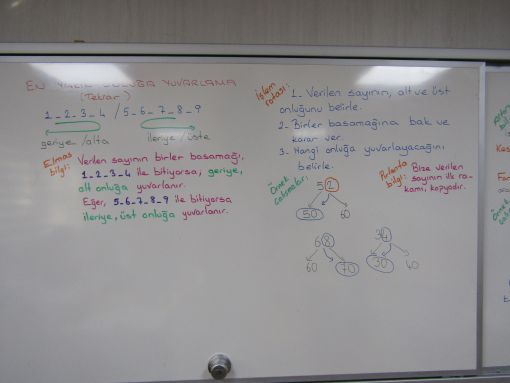 EN YAKIN ONLUĞA YUVARLAMA
(Tekrar)
1_2_3_4 / 5_6_7_8_9
geriye /alta
ileriye /üste
Elmas bilgi:
Verilen sayının birler basamağı,
1_2_3_4 ile bitiyorsa, geriye,
alt onluğa yuvarlanır.
Eğer, 5_6_7_8_9 ile bitiyorsa
ileriye, üst onluğa yuvarlanır.
İşlem rotası:
1_ Verilen sayının, alt ve üst
onluğunu belirle.
2_ Birler basamağına bak ve
karar ver.
3_ Hangi onluğa yuvarlayacağını
belirle.
Örnek çalışmalar:
52
50 60
68
60 70
34
30 40
Pırlanta bilgi:
Bize verilen
sayının ilk ra-
kamı, kopyadır.